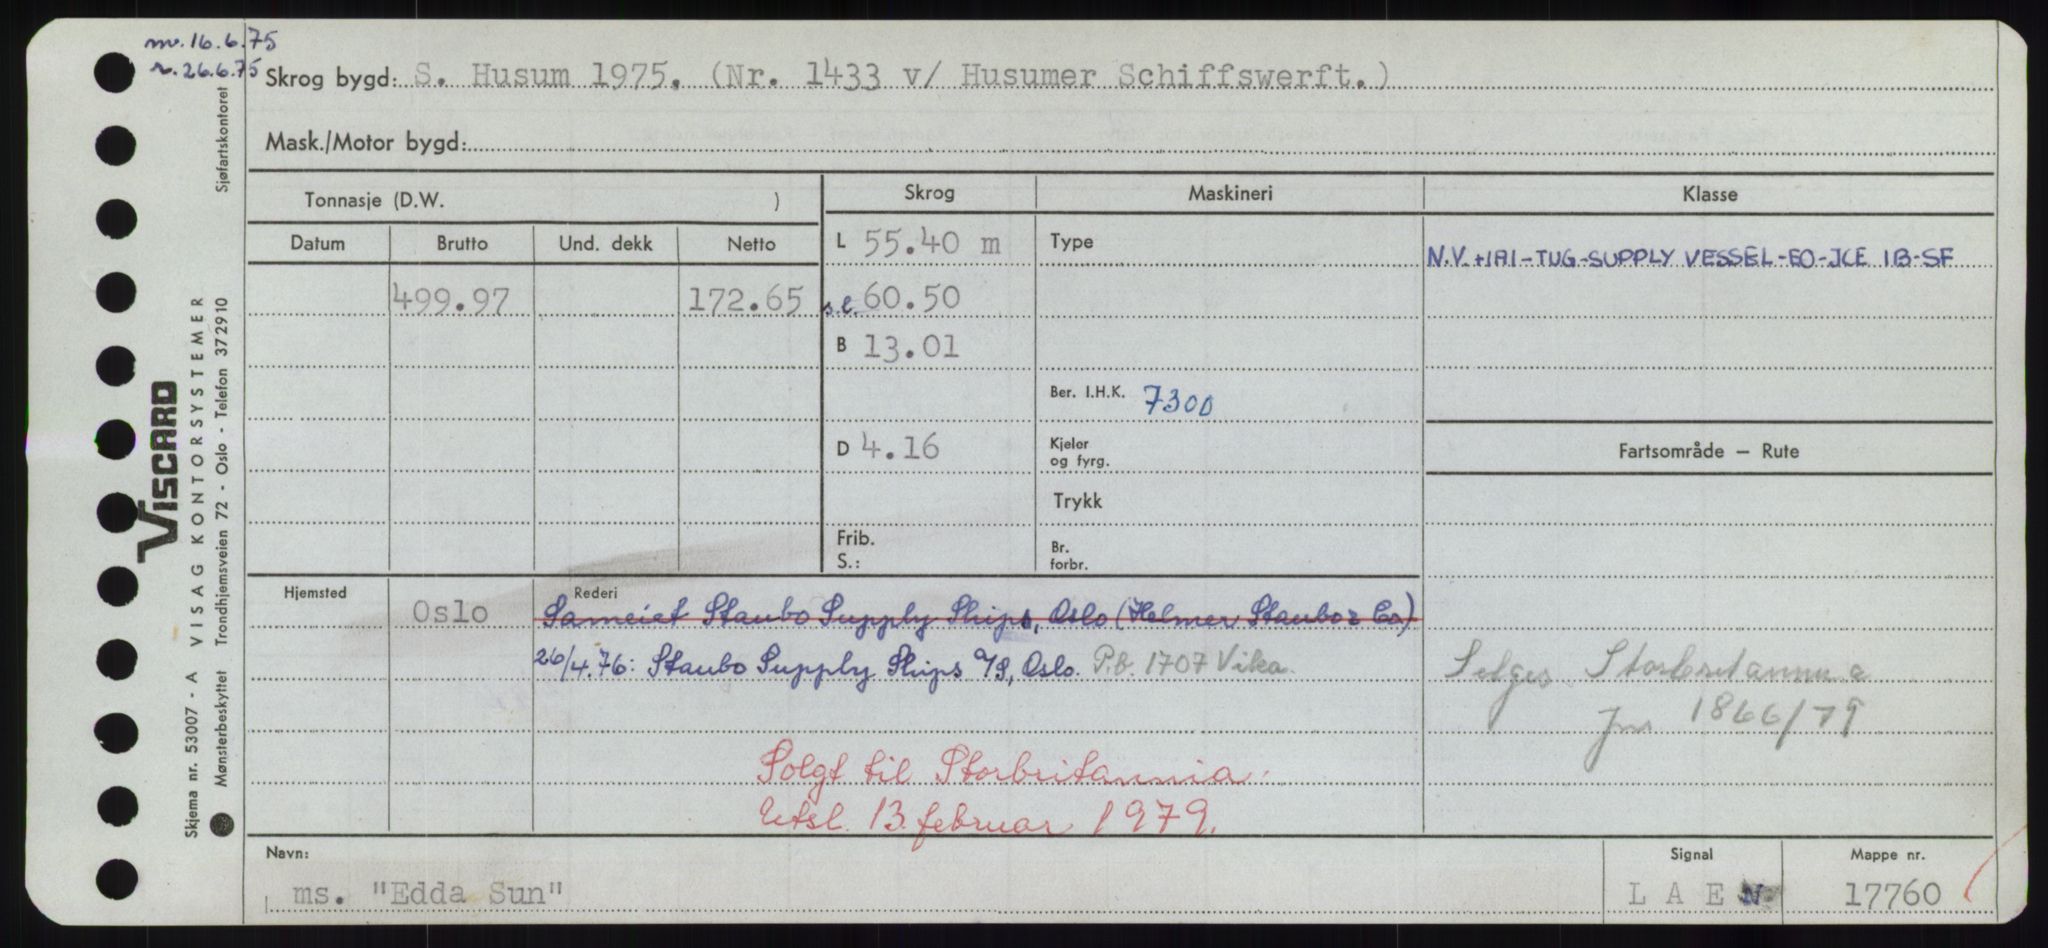 mv. 16.6.75
r. 26.6.75
Skrog bygd: S. Husum 1975. (Nr. 1433 v/ Husumer Schiffswerft.)
Mask./Motor bygd:
Tonnasje (D.W. )
Skrog
Maskineri
Klasse
Datum
Brutto
Und. dekk
Netto
L 55.40 m
Type
N.V.+1A1-TUG-SUPPLY VESSEL-EO-ICE 1B-SF
499.97
172.65
s.l. 60.50
B 13.01
Ber. I.H.K. 7300
D 4.16
Kjeler
og fyrg.
Fartsområde — Rute
Trykk
Frib.
S.:
Br.
forbr.
Hjemsted
Oslo
Rederi
Sameiet Staubo Supply Ships, Oslo (Helmer Staubo & Co)
26/4.76: Staubo Supply Ships A/S, Oslo. P.b. 1707 Vika.
Selges Storbritannia
Jnr 1866/79
Solgt til Storbritannia.
Utsl. 13. februar 1979.
Navn:
ms. "Edda Sun"
Signal
L A E N
Mappe nr.
17760
VISCARD
Skjema nr. 53007 - A VISAG KONTORSYSTEMER
Mønsterbeskyttet Trondhjemsveien 72 - Oslo - Telefon 372910 Sjøfartskontoret